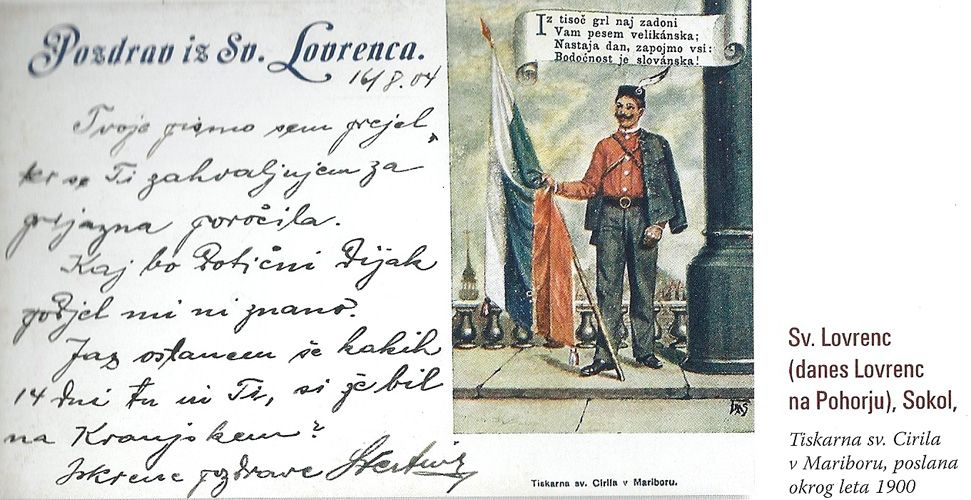 Pozdrav iz Sv. Lovrenca.
16/8. 04
Tvoje pismo sem prejel,
ter se Ti zahvaljujem za
prijazna poročila.
Kaj bo dotični dijak
počjel mi ni znano.
Jaz ostanem še kakih
14 dni tu in Ti, si že bil
na Kranjskem?
Iskrene pozdrave
Iz tisoč grl naj zadoni
Vam pesem velikánska;
Nastaja dan, zapojmo vsi:
Bodočnost je slovánska!
Tiskarna sv. Cirila v Mariboru.
Sv. Lovrenc
(danes Lovrenc
na Pohorju), Sokol,
Tiskarna sv. Cirila
v Mariboru, poslana
okrog leta 1900